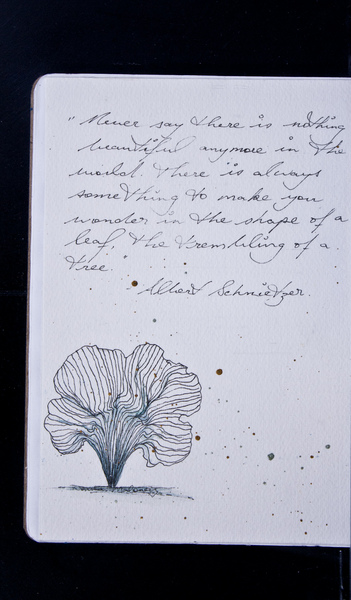 "Never say there is nothing
beautiful anymore in the
world. There is always
something to make you
wonder in the shape of a
leaf, the trembling of a
tree."
Albert Schwietzer.